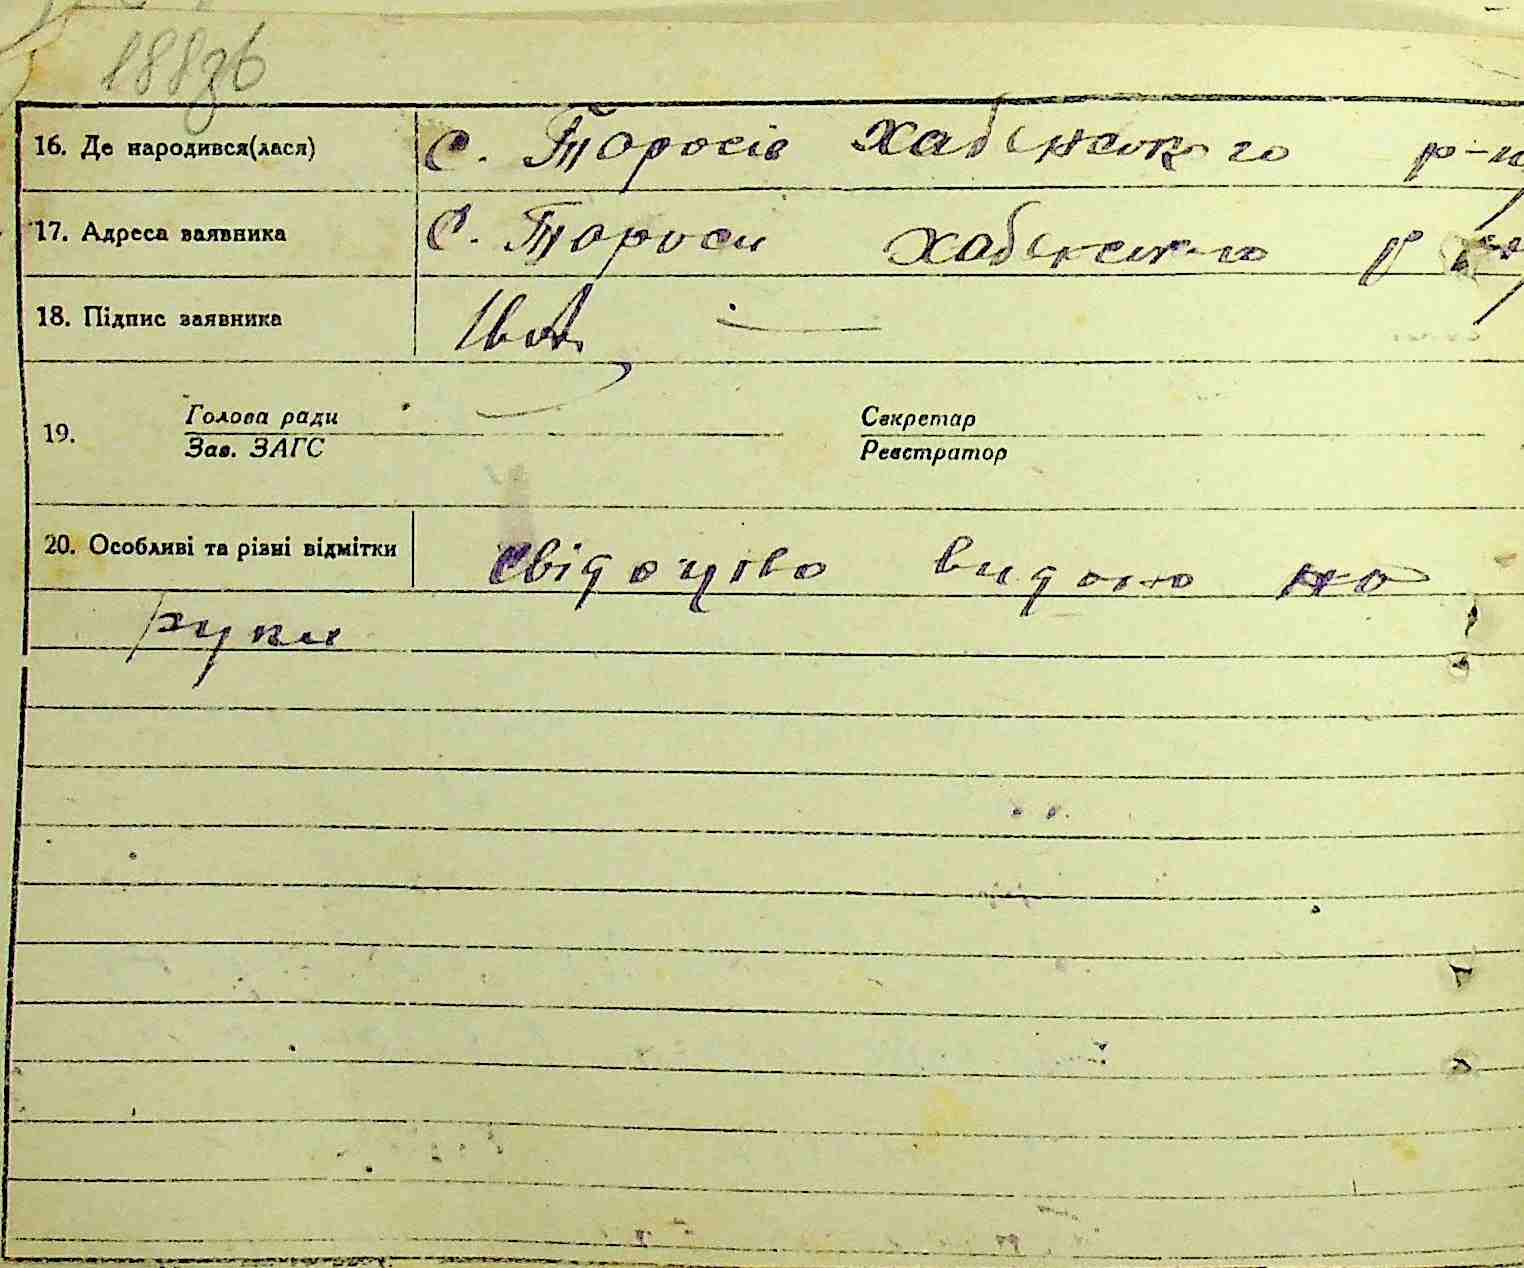 188зв
16. Де народився(лася) с. Таросів Хабенського р-ну
17. Адреса заявника с. Тароси Хабенського р-ну
18. Підпис заявника
19. Голова ради Секретар
Зав. ЗАГС Реєстратор
20. Особливі та різні відмітки свідоцтво видано на
руки